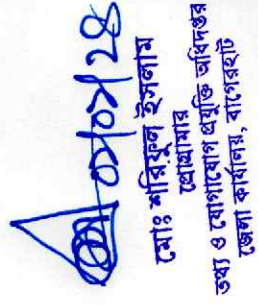 ০১/০১/২৪
মোঃ শরিফুল ইসলাম
প্রোগ্রামার
তথ্য ও যোগাযোগ প্রযুক্তি অধিদপ্তর
জেলা কার্যালয়, বাগেরহাট